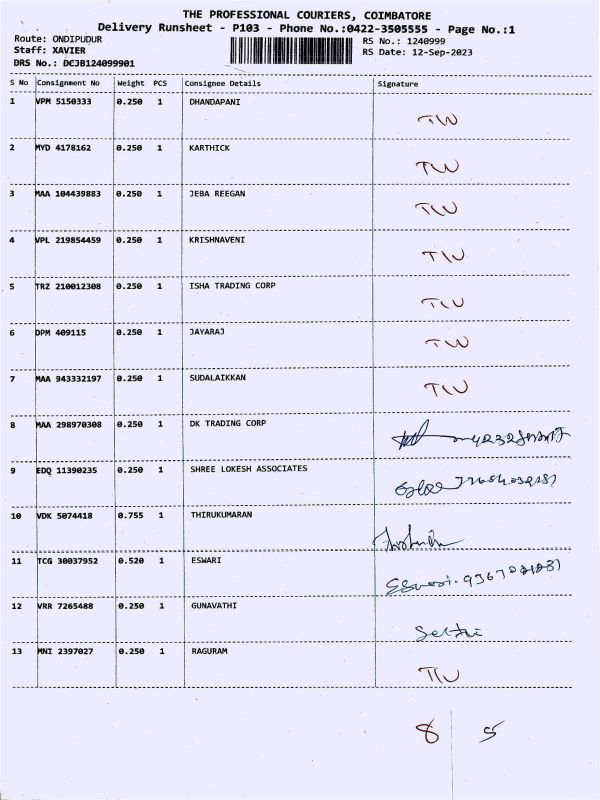 THE PROFESSIONAL COURIERS, COIMBATORE
Delivery Runsheet - P103 - Phone No.:0422-3505555 - Page No.:1
Route: ONDIPUDUR
RS No.: 1240999
Staff: XAVIER
RS Date: 12-Sep-2023
DRS No.: DCJB124099901
S No Consignment No Weight PCS Consignee Details Signature
1 VPM 5150333 0.250 1 DHANDAPANI
TW
2 MYD 4178162 0.250 1 KARTHICK
TW
3 MAA 104439883 0.250 1 JEBA REEGAN
TW
4 VPL 219854459 0.250 1 KRISHNAVENI
TW
5 TRZ 210012308 0.250 1 ISHA TRADING CORP
TW
6 DPM 409115 0.250 1 JAYARAJ
TW
7 MAA 943332197 0.250 1 SUDALAIKKAN
TW
8 MAA 298970308 0.250 1 DK TRADING CORP
9 EDQ 11390235 0.250 1 SHREE LOKESH ASSOCIATES
10 VDK 5074418 0.755 1 THIRUKUMARAN
11 TCG 30037952 0.520 1 ESWARI
12 VRR 7265488 0.250 1 GUNAVATHI
13 MNI 2397027 0.250 1 RAGURAM
TW
8 5